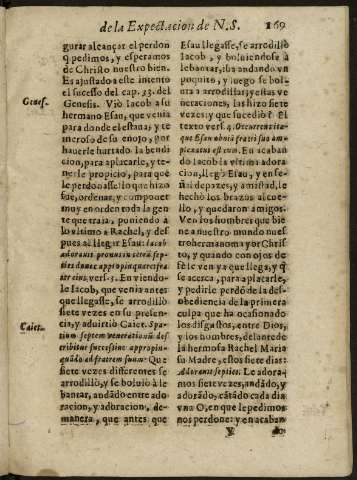 de la Expectacion de N.S. 169
gurar alcançar el perdon
q̃ pedimos, y esperamos
de Christo nuestro bien.
Es ajustado a este intento
el sucesso del cap. 33. del
Genes.
Genesis. Viò Iacob a su
hermano Esau, que venia
para donde el estaua; y te-
meroso de su enojo, por
hauerle hurtado la bendi-
cion, para aplacarle, y te-
nerle propicio, para que
le perdoasse: lo que hizo
fue, ordenar, y componer
muy en orden toda la gen
te que traia, poniendo a
lo vltimo a Rachel, y des-
pues al llegar Esau: Iacob
adorauit pronus in terrã sep-
ties donec appropinquaret fra-
ter eius, vers. 3. En viendo-
le Iacob, que venia antes
que llegasse, se arrodillò
siete vezes en su presen-
cia, y aduirtio Caiet. Spa-
Caiet.
tium septem venerationum des-
cribitur successiue appropin-
quãdo ad fratrem suum. Que
siete vezes differentes se
arrodillò, y se boluiò a le
bantar, andãdo entre ado-
racion, y adoracion, de-
manera, que antes que
Esau llegasse, se arrodillò
Iacob, y boluiendose a
lebantar, iba andando vn
poquito, y luego se bol-
uia a arrodillar; y estas ve
neraciones, las hizo siete
vezes; y que sucediò? El
texto vers. 4. Occurrens ita-
que Esau obuiã fratri suo am-
plexatus est eum. En acaban
do Iacob la vltima adora
cion, llegò Esau, y en se-
ñal de pazes, y amistad, le
hechò los brazos al cue-
llo, y quedaron amigos.
Ven los hombres que bie
ne a nuestro mundo nues
tro hermano mayor Chris
to, y quando con ojos de
fè le ven ya que llega, y q̃
se acerca, para aplacarle,
y pedirle perdõ de la des-
obediencia de la primera
culpa que ha ocasionado
los disgastos, entre Dios,
y los hombres, delante de
la hermosa Rachel Maria
su Madre, estos siete dias:
Adorant septies: Le adora-
mos siete vezes, andãdo, y
adorãdo, cãtãdo cada dia
vna O, en que le pedimos
nos perdone: y en acaban
Y do